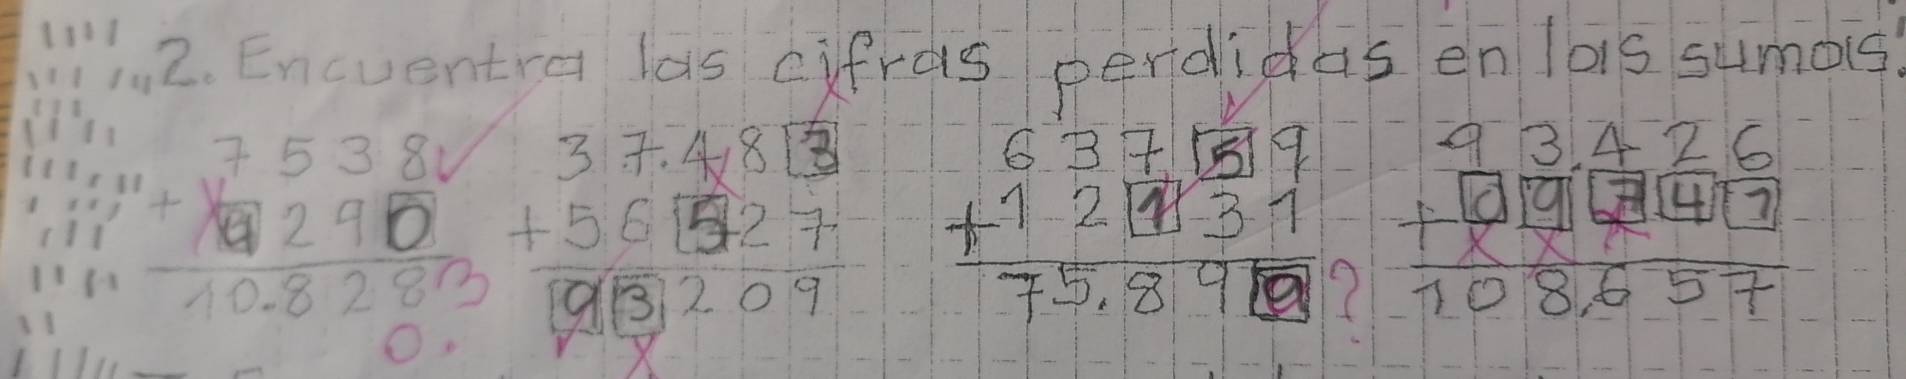 2. Encuentra las cifras perdidas en las sumas:
7538 37.483 63759 93.426
+ 9290 +56527 +12131 +09741
10.828 93209 75.899? 108.657
3
0.